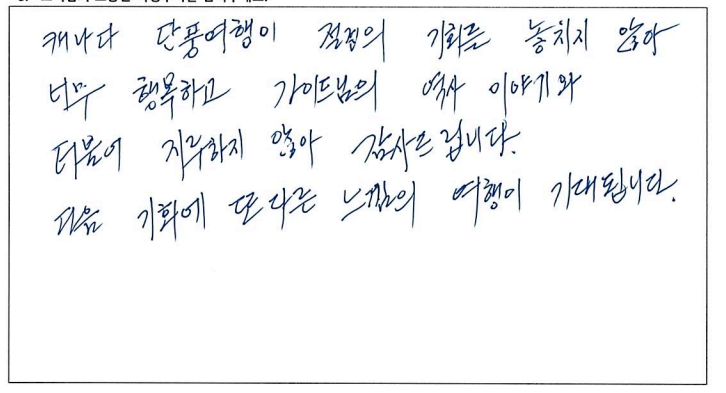 캐나다 단풍여행이 절정의 기회를 놓치지 않아
너무 행복하고 가이드님의 역사 이야기와
더불어 지루하지 않아 감사드립니다.
다음 기회에 또 다른 느낌의 여행이 기대됩니다.